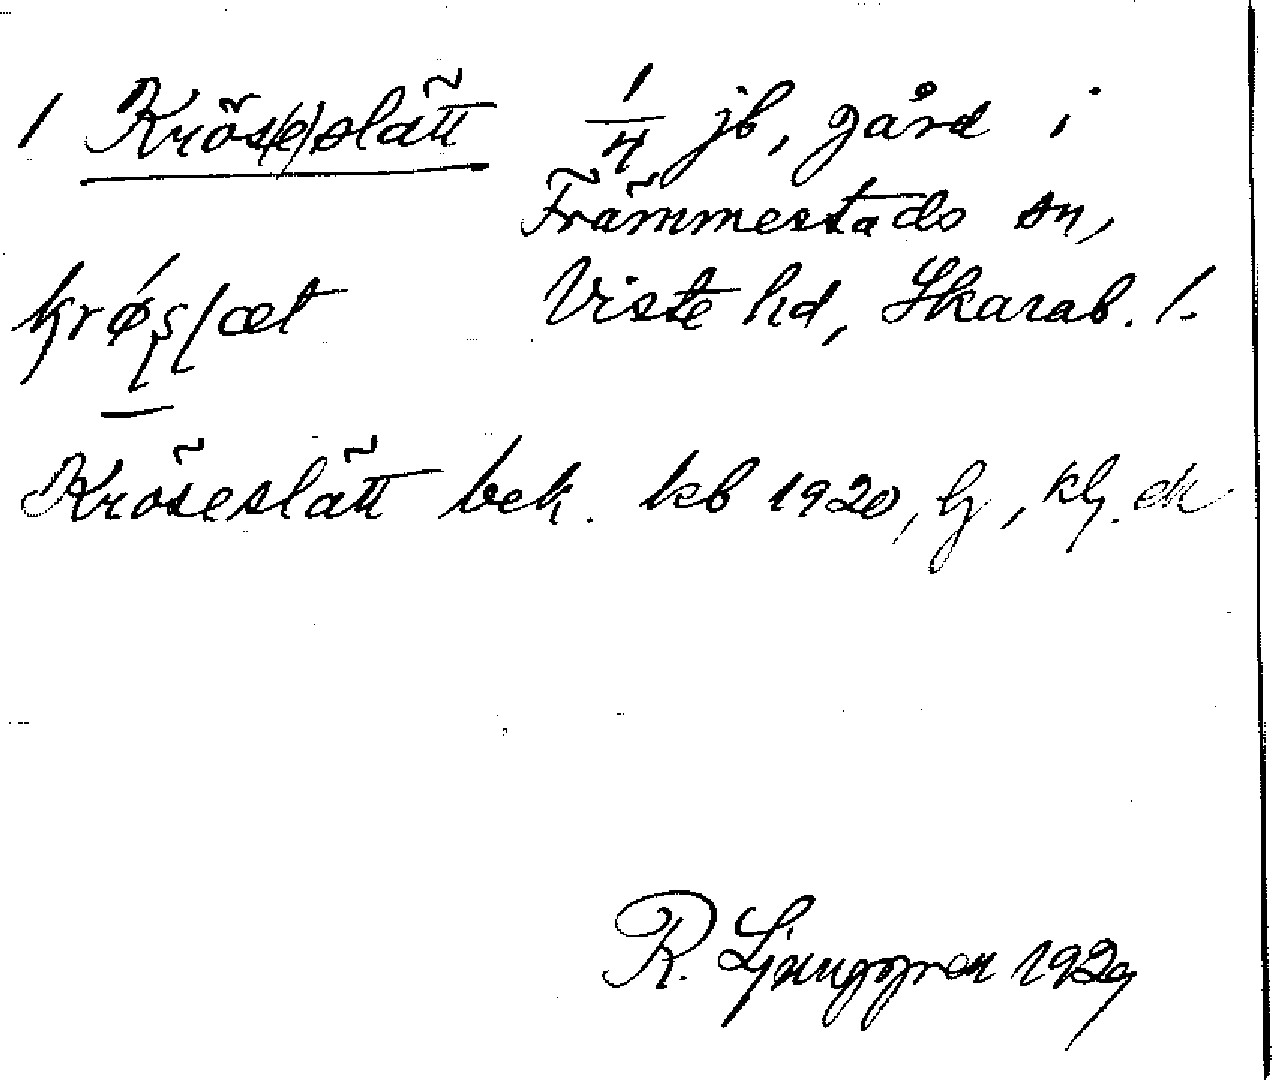 1 Krös(e)slätt 1/4 jb, gård i
Främmestads sn,
Viste hd, Skarab. l.
krøsslæt
Kröseslätt bek. kb 1920,
R. Ljunggren 1929